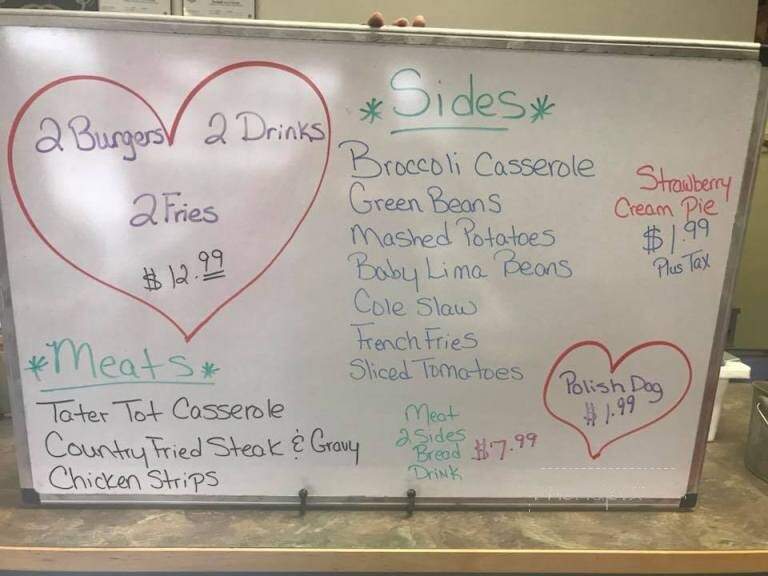 2 Burgers 2 Drinks
2 Fries
$12.99
*Meats*
Tater Tot Casserole
Country Fried Steak & Gravy
Chicken Strips
*Sides*
Broccoli Casserole
Green Beans
Mashed Potatoes
Baby Lima Beans
Cole Slaw
French Fries
Sliced Tomatoes
Meat
2 Sides
Bread
Drink
$7.99
Strawberry
Cream Pie
$1.99
Plus Tax
Polish Dog
$1.99